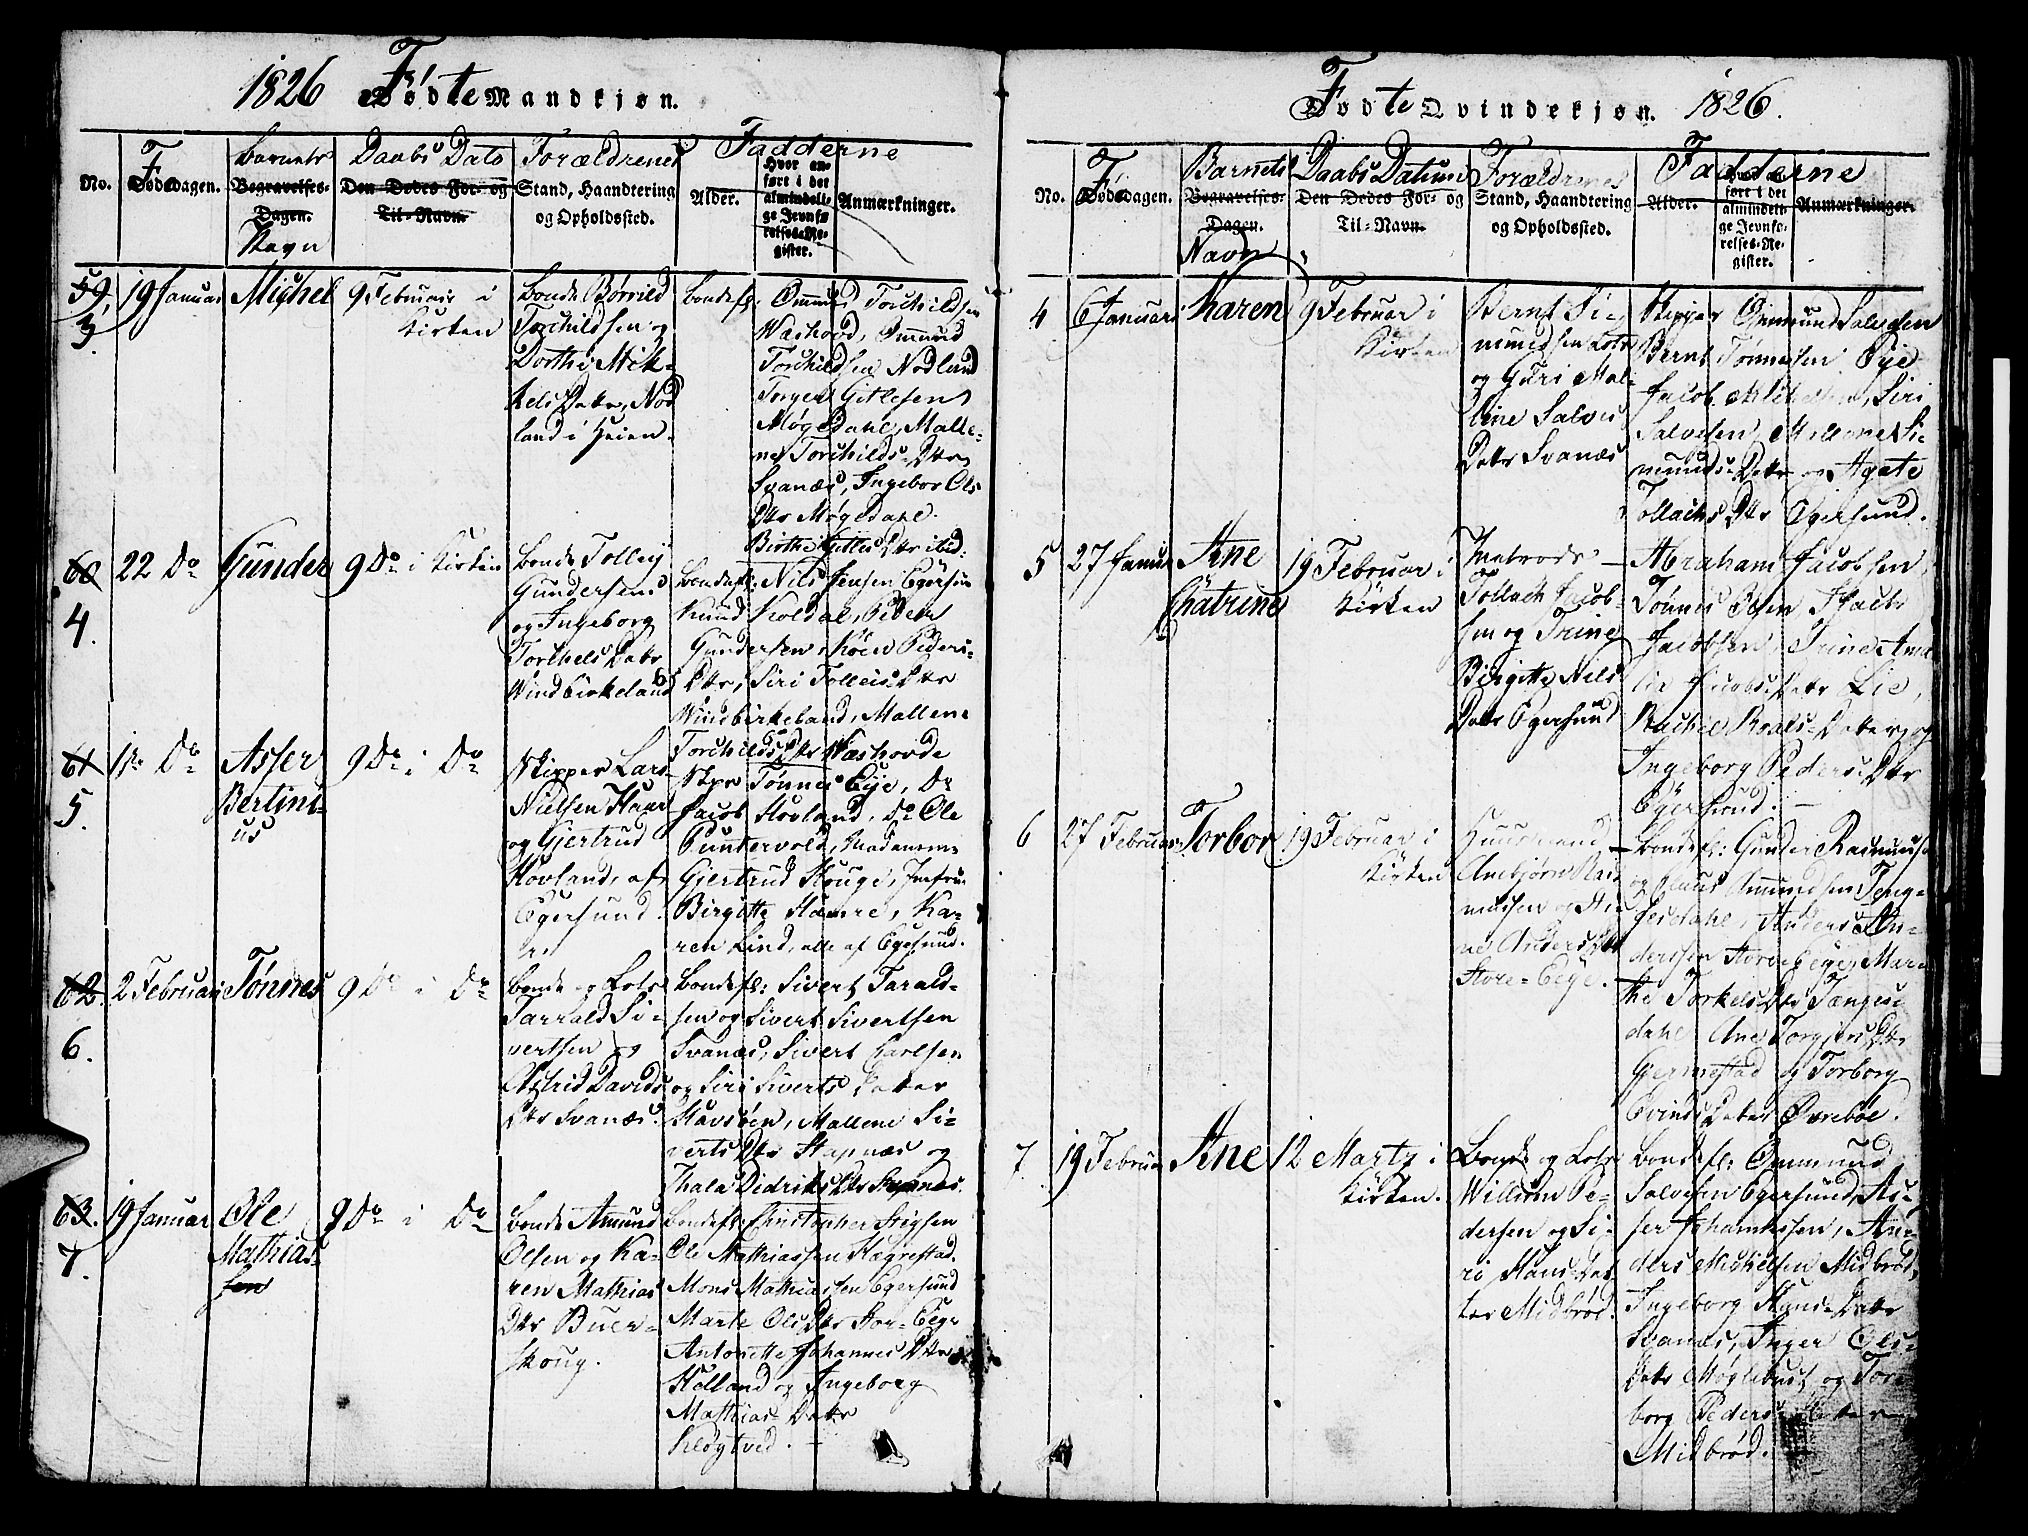 1826 Fødte Mandkjøn.
No.
Fødsdagen.
Barnets
Begravelses-
Dagen.
Navn
Daabs Dato
Den Dødes For- og
Til-Navn.
Forældrenes
Stand, Haandtering
og Opholdssted.
Fadderne
Alder.
Hvor an-
ført i det
almindeli-
ge Jevnfø-
relses-Re-
gister.
Anmærkninger.
59.
3.
19 Januar
Michel
9 Februar i
Kirken
Bonde Børrild
Torchildsen og
Dorthe Mik-
kels Datr. Nod
land i Heien.
Bondefl: Ommund Torchildsen
Washovd, Ommund
Torchildsen Nodland
Torger Gitlesen
Møgedahl, Malle-
ne Torchilds Dtr
Svanæs, Ingebor Ols
Dtr Møgedahl.
Birthe Gitles Dtr ibid:
60
4.
22 Do
Gunder
9 Do i Kirken
Bonde Tollev
Gundersen
og Ingeborg
Torchels Datr
Windbirkeland
Bondefl: Nils Jensen Egersun
Knud Koldal, Peder
Gundersen,
Dtr, Siri Tolleis Dtr
Windbirkeland, Mallene
Torchilds Dtr Wæshovde
61
5.
Do
Asser
Bertini-
us
9 Do i Do
Skipper Lars
Nielsen Haar
og Gjertrud
Hovland, af
Egersund.
Skpr Tønnes Eye, Do
Jacob Hovland, do Ole
Puntervold, Madamme
Gjertrud Houge, Jomfru
Birgitte Hamre, Ka-
ren Lind, alle af Egersund.
62.
6.
2 Februar
Tønnes
9 Do i Do
Bonde og Lods
Tarrald Si-
vertsen og
Astrid Davids
Dtr Svanæs.
Bondefl: Sivert Tarald-
sen og Sivert Sivertsen
Svanæs, Sivert Carlsen
og Siri Siverts Datter
Stavsøen, Mallene Si-
verts Dtr Stapnæs og
Thala Didriks Dtr Svanes.
63.
7.
19 Januar
Ole
Mathias-
sen
9 Do i Do
Bonde Amund
Olsen og Ka-
ren Mathias
Dtr Buer-
skoug.
Bondefl: Christopher Stigsen
Ole Mathiassen Hægrestad
Mons Mathiassen Egersund
Marte Ols Dtr Stor-Eege
Antonette Johannes Dtr
Holland og Ingeborg
Mathias Datr
Kløgtved.
Fødte Qvindekjøn. 1826.
No.
Fødsdagen.
Barnets
Begravelses-
Dagen.
Navn
Daabs Datum
Den Dødes For- og
Til-Navn.
Forældrenes
Stand, Haandtering
og Opholdssted.
Fadderne
Alder.
Hvor an-
ført i det
almindeli-
ge Jevnfø-
relses-Re-
gister.
Anmærkninger.
4
6 Januar
Karen
9 Februar i
Kirken
Bernt Si-
mundsen Lots
og Guri Mal-
lene Salves
Datr Svanæs
Skipper Ommund Salvesen
Bernt Tønnesen Eye
Jacob Mikelsen, Siri
Salvesen, Mallene Si-
munds Datr og Agate
Tollachs Dtr Egersund.
5
27 Januar
Ane
Chatrine
19 Februar i
Kirken
Tollach Jacob-
sen og Trine
Birgitte Nils
Datr Egersund
Abraham Jacobsen
Tønnes Olsen,
Jacobsen, Trine Ama
lia Jacobs Datr Lie,
Rachel Roalds Datter, og
Ingeborg Peders Dtr
Egersund.
6
27 Februar
Torbor
19 Februar i
Kirken
Huusmand
Anbjørn Ras
mussen og An-
ne Anders Dtr
Store-Eege.
Bondefl: Gunder Rasmuss
og Ommundsen Teng-
jesdahl, Anders An-
derssen Store Eege, Mar-
the Torkels Dtr Tænges-
dahl Ane Torgers Dtr
Gjermestad og Torborg
Evinds Datter Øvrebøe.
7
19 Februar
Ane
12 Marts i
Kirken.
Bonde og Lots
Willum Pe-
dersen og Si-
ri Hans Dat
ter Midbrød.
Bondefl: Ommund
Salvesen Egersund, As-
ser Johannessen, An-
ders Michelsen Midbrød,
Ingeborg Hans Datter
Svanæs, Inger Ols-
Datr Møglebust og Tor-
borg Peders Datter
Midbrød.